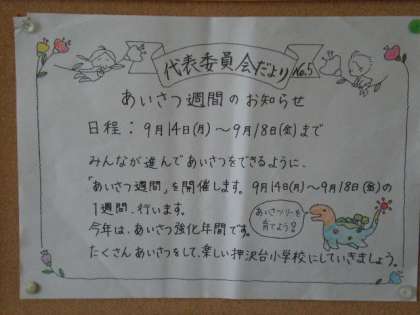 代表委員会だより No.5
あいさつ週間のお知らせ
日程：9月14日(月)～9月18日(金)まで
みんなが進んであいさつをできるように、
「あいさつ週間」を開催します。9月14日(月)～9月18日(金)の
1週間、行います。
今年は、あいさつ強化年間です。
あいさつリーを
育てよう!
たくさんあいさつをして、楽しい押沢台小学校にしていきましょう。